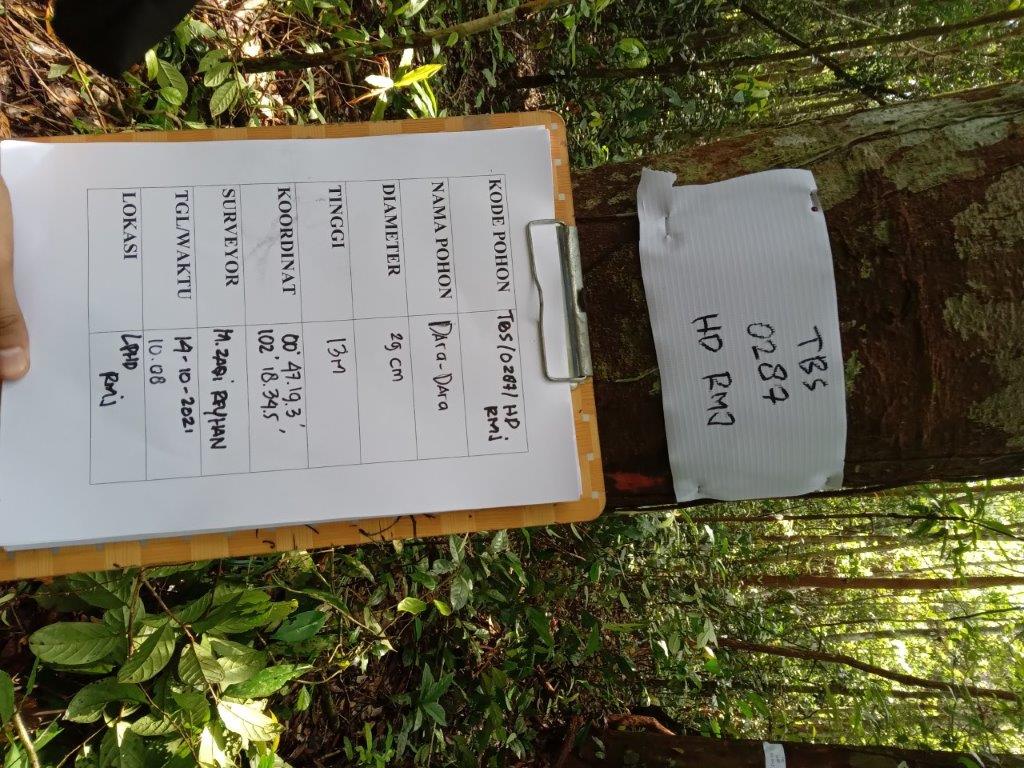 KODE POHON TBS/0287/ HD
RMj
NAMA POHON DARA-DARA
DIAMETER 29 cm
TINGGI 13M
KOORDINAT 00° 47. 19,3'
102°. 18. 34,5'
SURVEYOR M. ZAQI RAYHAN
TGL/WAKTU 14-10-2021
10.08
LOKASI LPHD
RMj
TBS
0287
HD RMJ